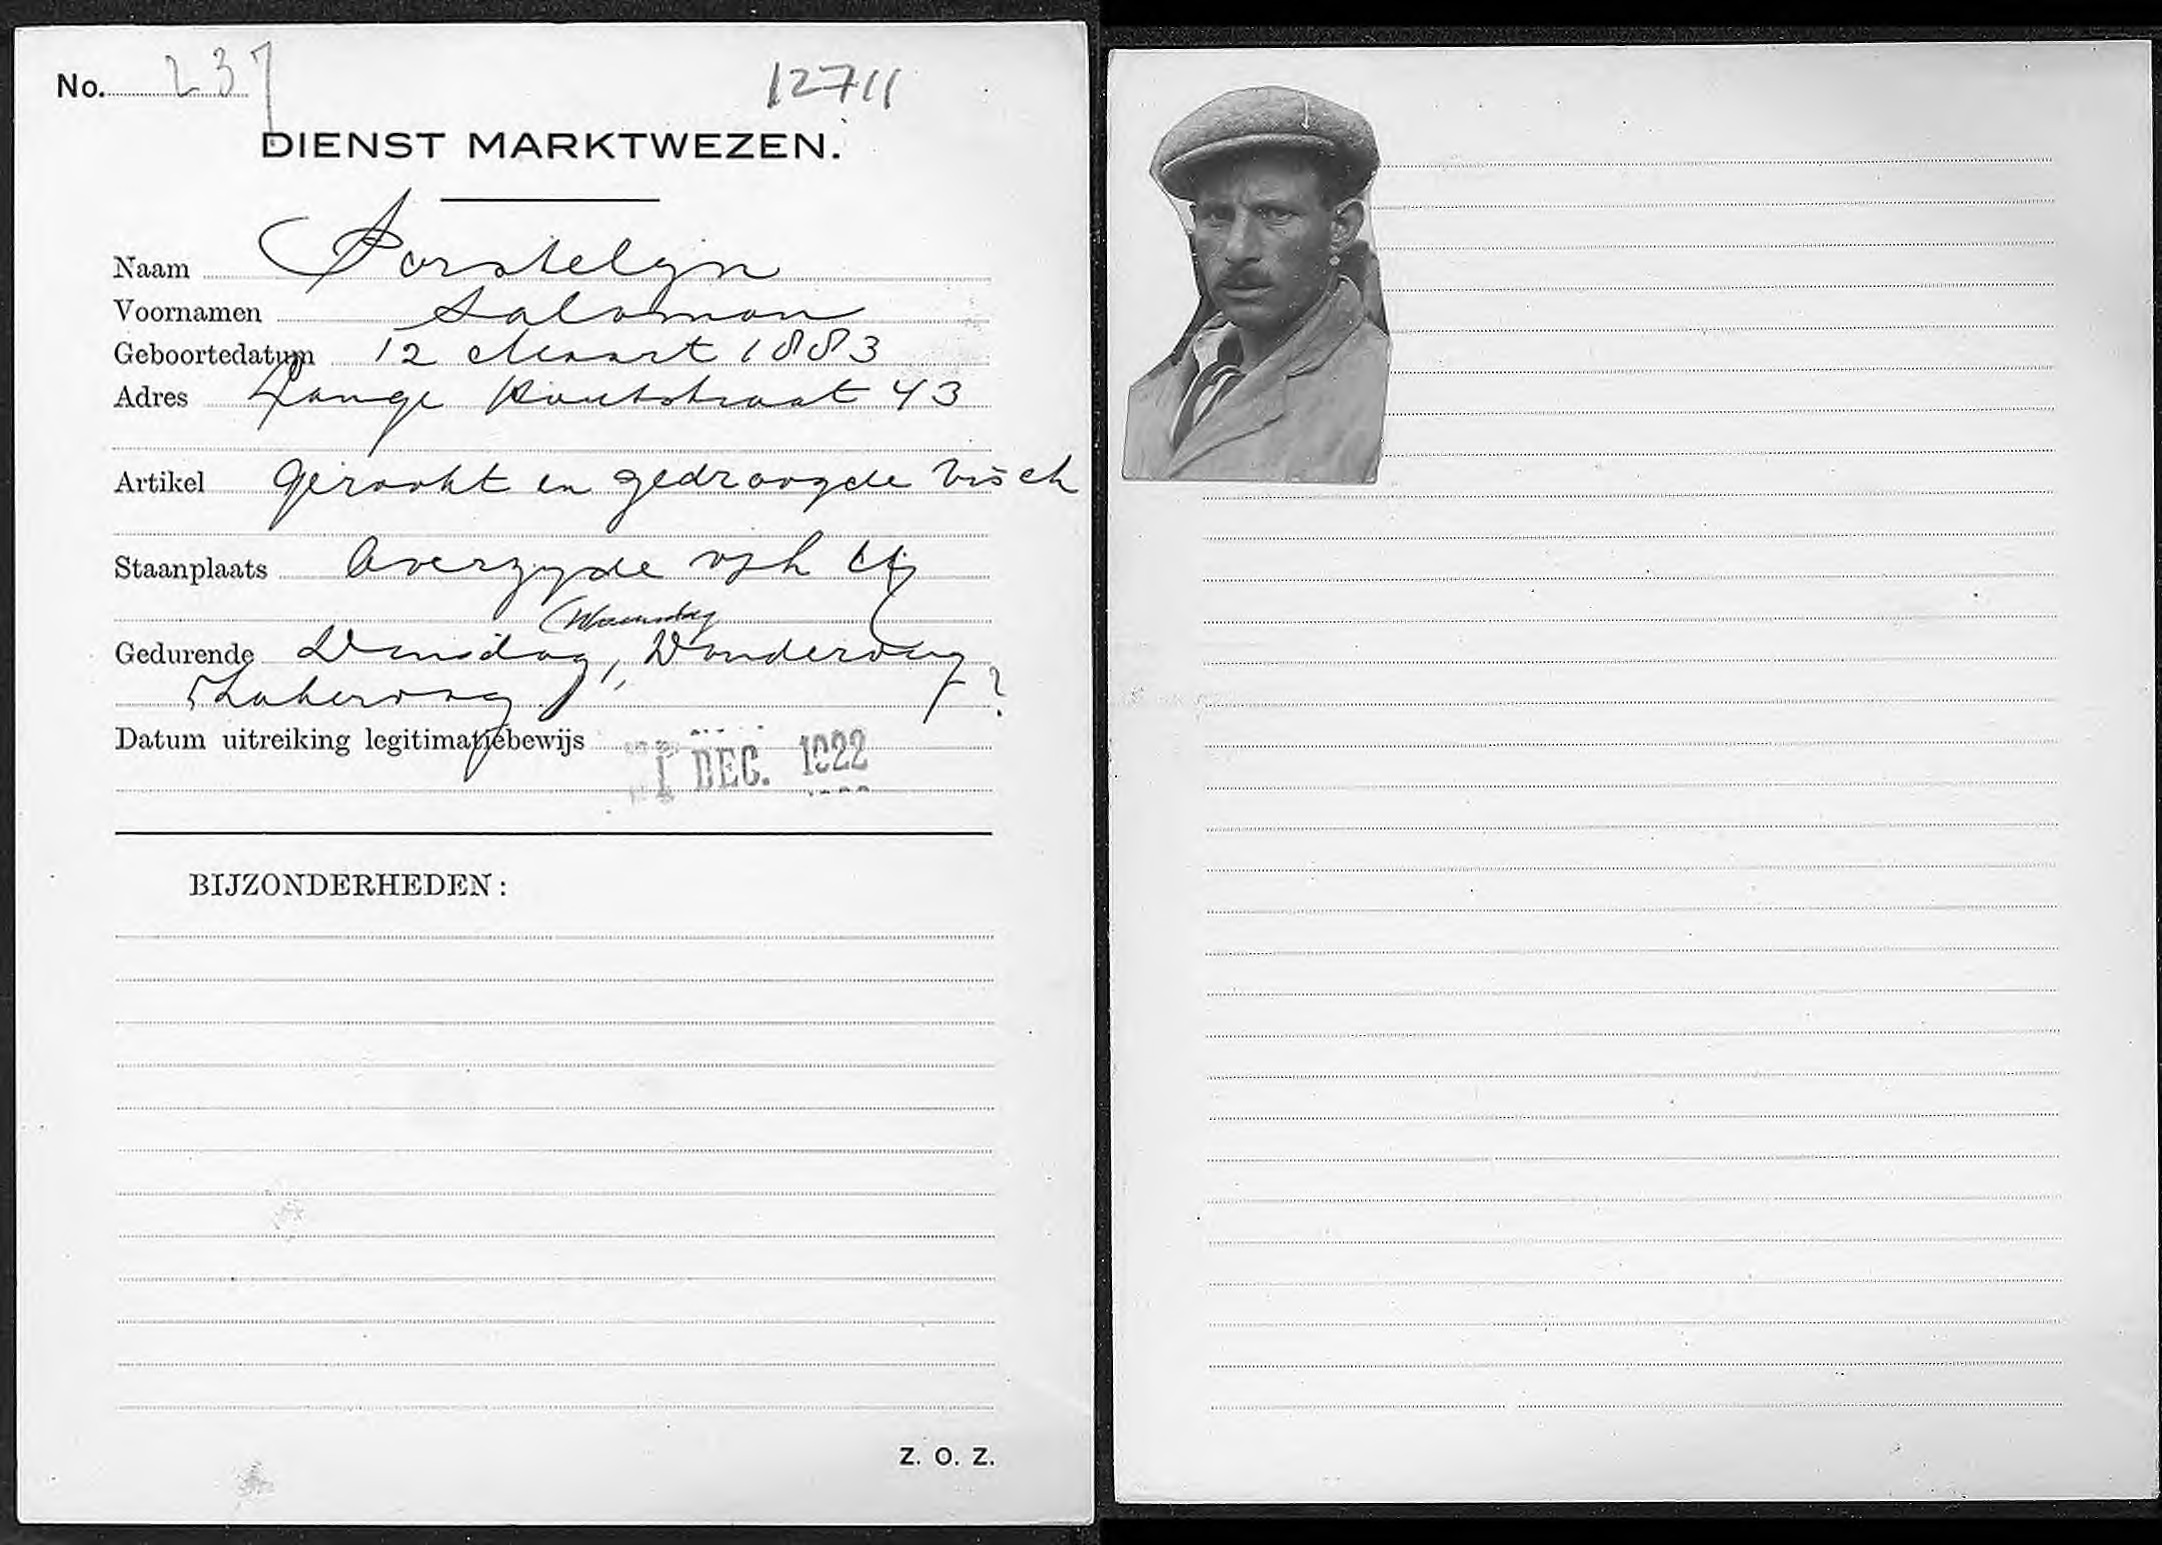 No. 237 12711
DIENST MARKTWEZEN.
Naam Porstelijn
Voornamen Salomon
Geboortedatum 12 Maart 1883
Adres Lange Houtstraat 43
Artikel Gerookt en gedroogde visch
Staanplaats Overzyde v/h Y
(Woensdag
Gedurende Dinsdag, Donderdag
Zaterdag ?
Datum uitreiking legitimatiebewijs
1 DEC. 1922
BIJZONDERHEDEN:
Z. O. Z.